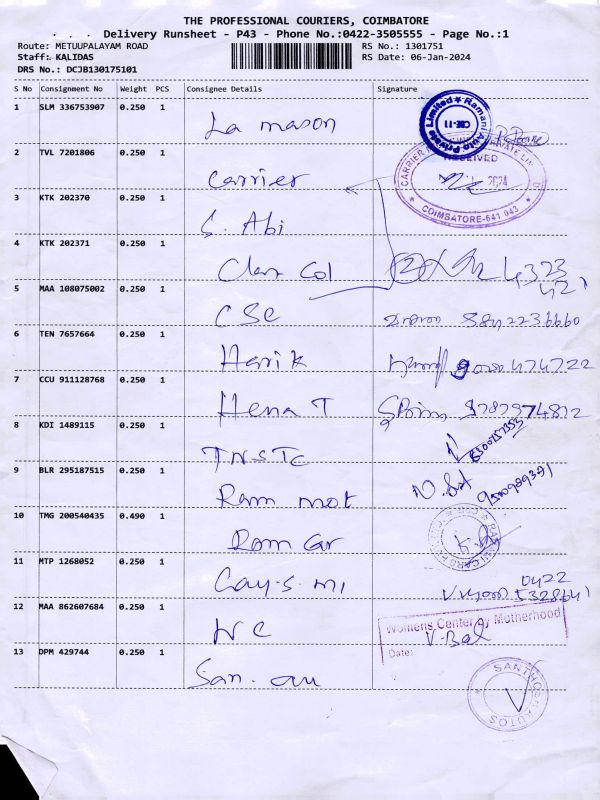 THE PROFESSIONAL COURIERS, COIMBATORE
. . . Delivery Runsheet - P43 - Phone No.:0422-3505555 - Page No.:1
Route: METUUPALAYAM ROAD
RS No.: 1301751
Staff: KALIDAS
RS Date: 06-Jan-2024
DRS No.: DCJB130175101
S No Consignment No Weight PCS Consignee Details Signature
1 SLM 336753907 0.250 1
La mason
Ramani Auto Private Limited
CBE-11
2 TVL 7201806 0.250 1
carrier
RECEIVED
2024
COIMBATORE-641 043
3 KTK 202370 0.250 1
S. Abi
4 KTK 202371 0.250 1
Clan Col
4323
5 MAA 108075002 0.250 1
CSC
6 TEN 7657664 0.250 1
Harik
7 CCU 911128768 0.250 1
Hena T
8787974812
8 KDI 1489115 0.250 1
TNSTC
9 BLR 295187515 0.250 1
Ram mot
10 TMG 200540435 0.490 1
Ram Car
11 MTP 1268052 0.250 1
Gay.s.mi
0422
5328641
12 MAA 862607684 0.250 1
WC
Womens Center by Motherhood
V.Bal
Date:
13 DPM 429744 0.250 1
San. au
SANTHOSH AUTOS